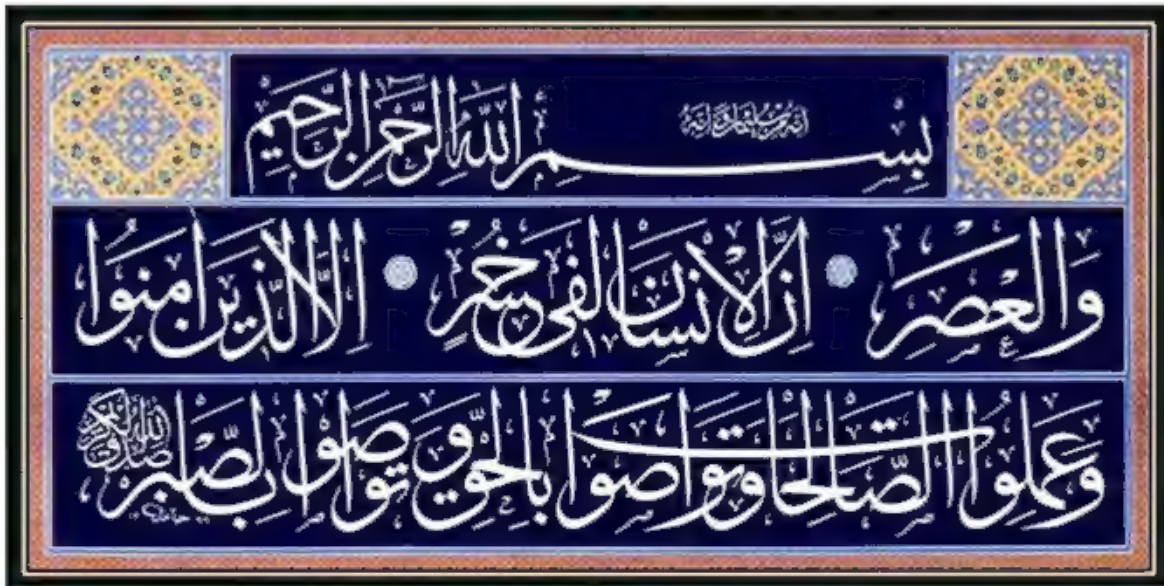 بِسْمِ اللهِ الرَّحْمٰنِ الرَّحِيمِ
إنه من سليمان وإنه
وَالْعَصْرِ اِنَّ الْاِنْسَانَ لَفِى خُسْرٍ اِلَّا الَّذِينَ اٰمَنُوا
وَعَمِلُوا الصَّالِحَاتِ وَتَوَاصَوْا بِالْحَقِّ وَتَوَاصَوْا بِالصَّبْرِ
صدق الله